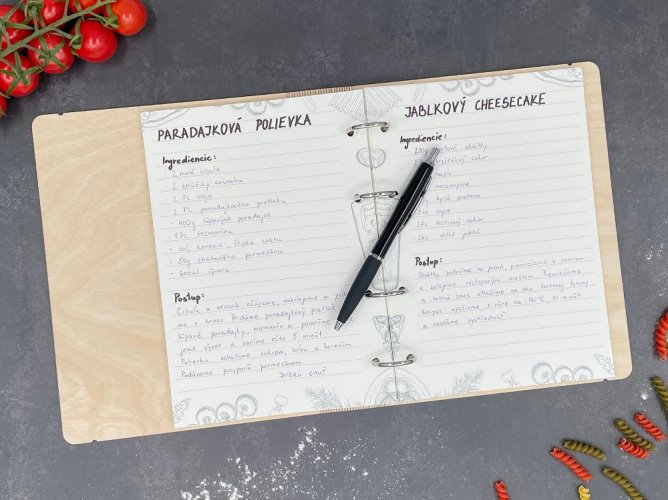 PARADAJKOVÁ POLIEVKA
Ingrediencie:
- 2 malé cibule
- 2 strúčiky cesnaku
- 2 PL oleja
- 2 PL paradajkového pretlaku
- 400g lúpaných paradajok
- 1 PL rozmarínu
- soľ, korenie, štipka cukru
- 50g strúhaného parmezánu
- 600ml vývaru
Postup:
Cibuľu a cesnak ošúpeme, nakrájame a
me v hrnci. Pridáme paradajkový pretlak
lúpané paradajky, rozmarín a povaríme
jeme vývar a varíme ešte 5 minút
Polievku ochutíme cukrom, soľou a korením.
Podávame posypanú parmezánom
DOBRÚ CHUŤ
JABLKOVÝ CHEESECAKE
Ingrediencie:
cukor
maslo
mascarpone
kyslá smotana
vajce
1PL trstinový cukor
- 2ks veľké jablká
Postup:
premiešame s cukrom
a zalejeme roztopeným maslom. Premiešame
a hotovú zmes na dno tortovej formy
v rúre na 180°C, 10 minút
a necháme vychladnúť